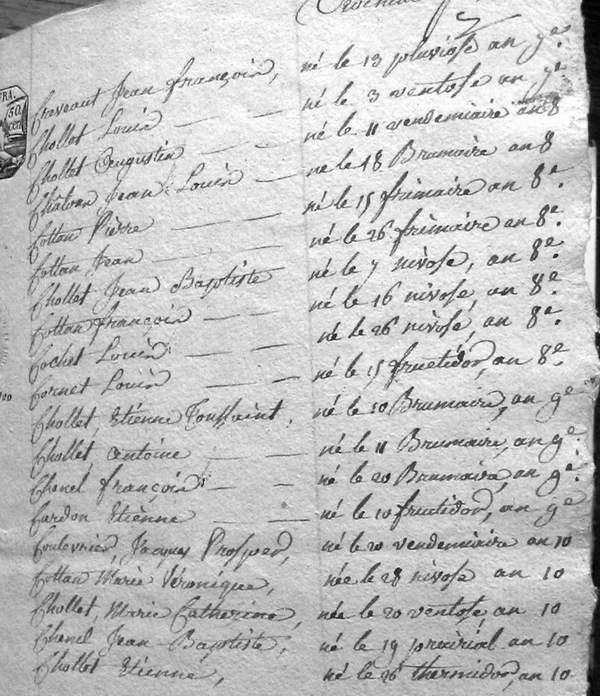 Craveaut Jean françois, né le 13 pluviose an 7e.
Chollet Louis né le 3 ventose an 7e
Chollet Augustin né le 11 vendemiaire an 8
Chatoen Jean Louis né le 18 Brumaire an 8
Cottan Pierre né le 15 frimaire an 8e.
Cottan Jean né le 26 frimaire an 8e.
Chollet Jean Baptiste né le 7 nivose, an 8e.
Cottan françois né le 16 nivose, an 8e.
Cochet Louis né le 26 nivose, an 8e.
Cornet Louis né le 15 fructidor, an 8e.
Chollet, Etienne Toussaint, né le 10 Brumaire, an 9e
Chollet antoine né le 11 Brumaire, an 9e.
Chenel françois né le 20 Brumaire, an 9e.
Cardon Etienne né le 10 fructidor, an 9e
Jacques Prosper, né le 20 vendemiaire an 10
Cottan Marie Véronique, née le 28 nivose an 10
Chollet, Marie Catherine, née le 20 ventose, an 10
Chenel Jean-Baptiste, né le 19 prairial an 10
Chollet Etienne, né le 26 thermidor, an 10